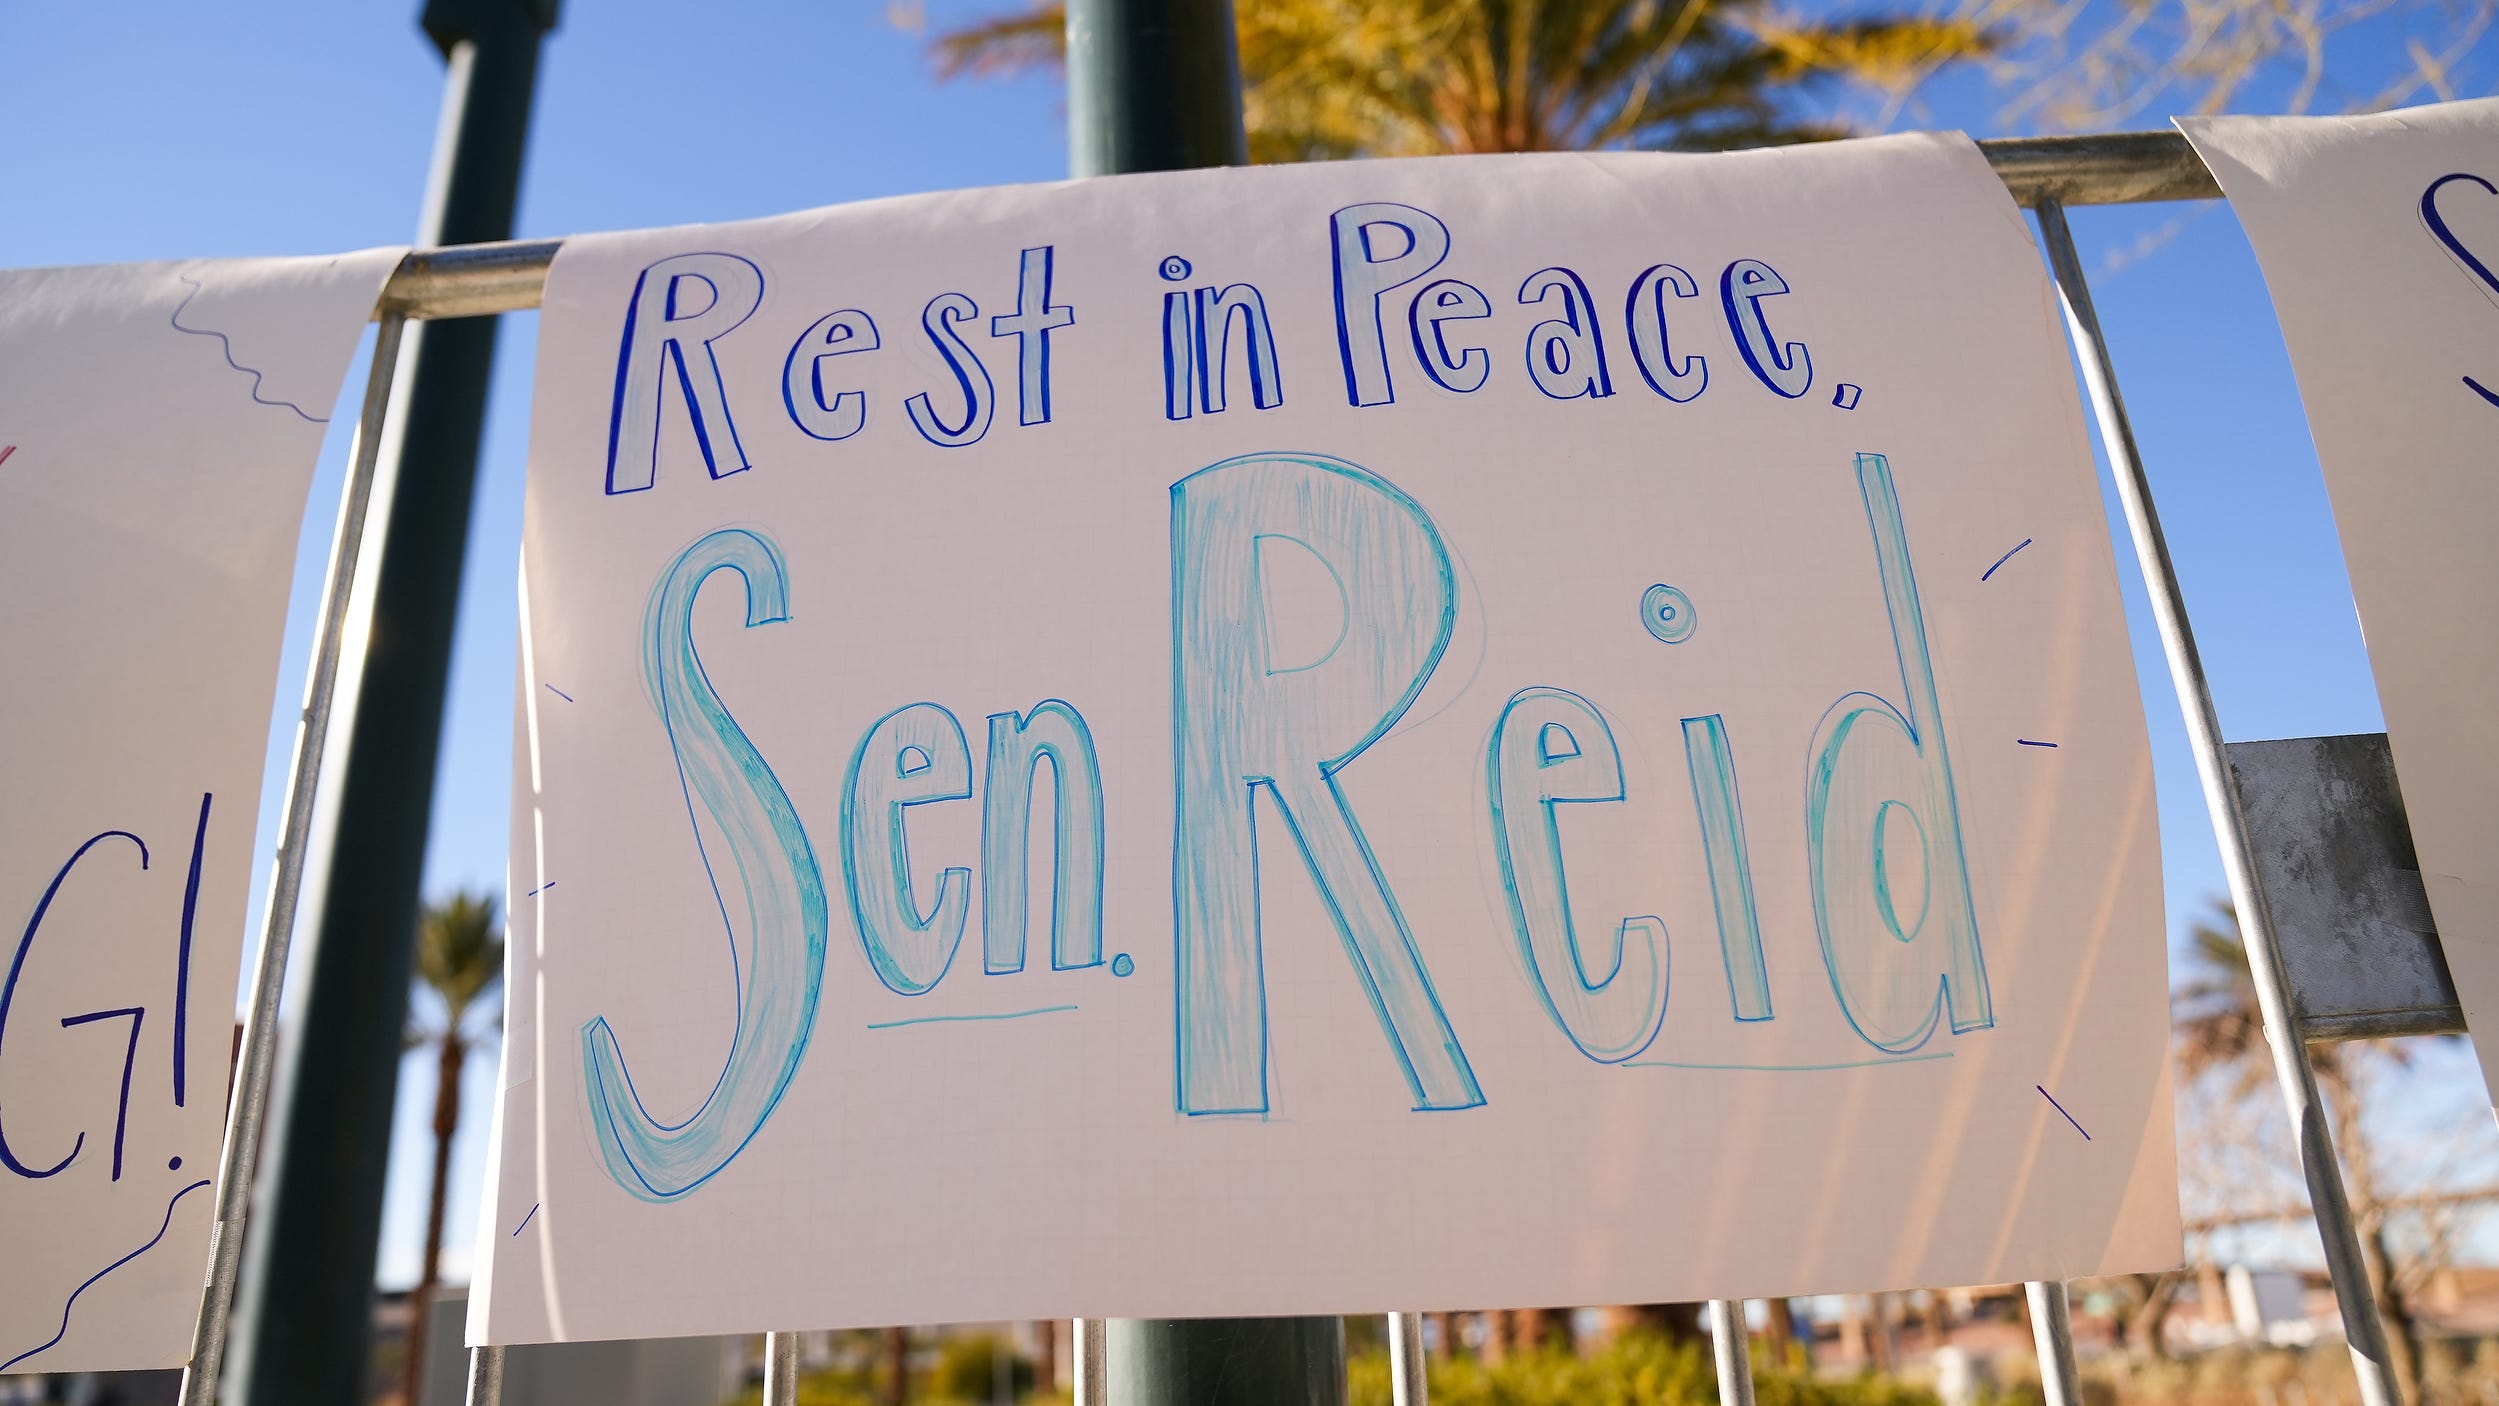 G!
Rest in Peace,
Sen. Reid